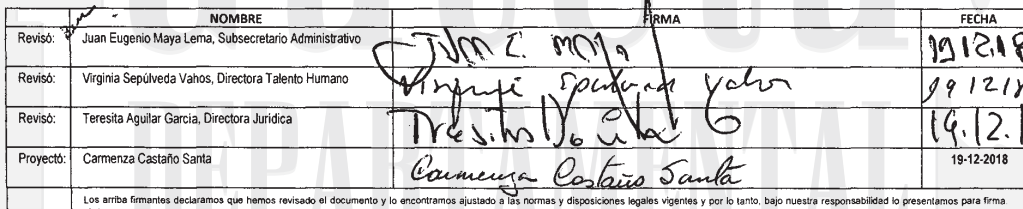 NOMBRE FIRMA FECHA
Revisó: Juan Eugenio Maya Lema, Subsecretario Administrativo 19 12 18
Revisó: Virginia Sepúlveda Vahos, Directora Talento Humano 19 12 18
Revisó: Teresita Aguilar Garcia, Directora Jurídica 19.12.1
Proyectó: Carmenza Castaño Santa Carmenza Castaño Santa 19-12-2018
Los arriba firmantes declaramos que hemos revisado el documento y lo encontramos ajustado a las normas y disposiciones legales vigentes y por lo tanto, bajo nuestra responsabilidad lo presentamos para firma
DEPARTAMENTAL